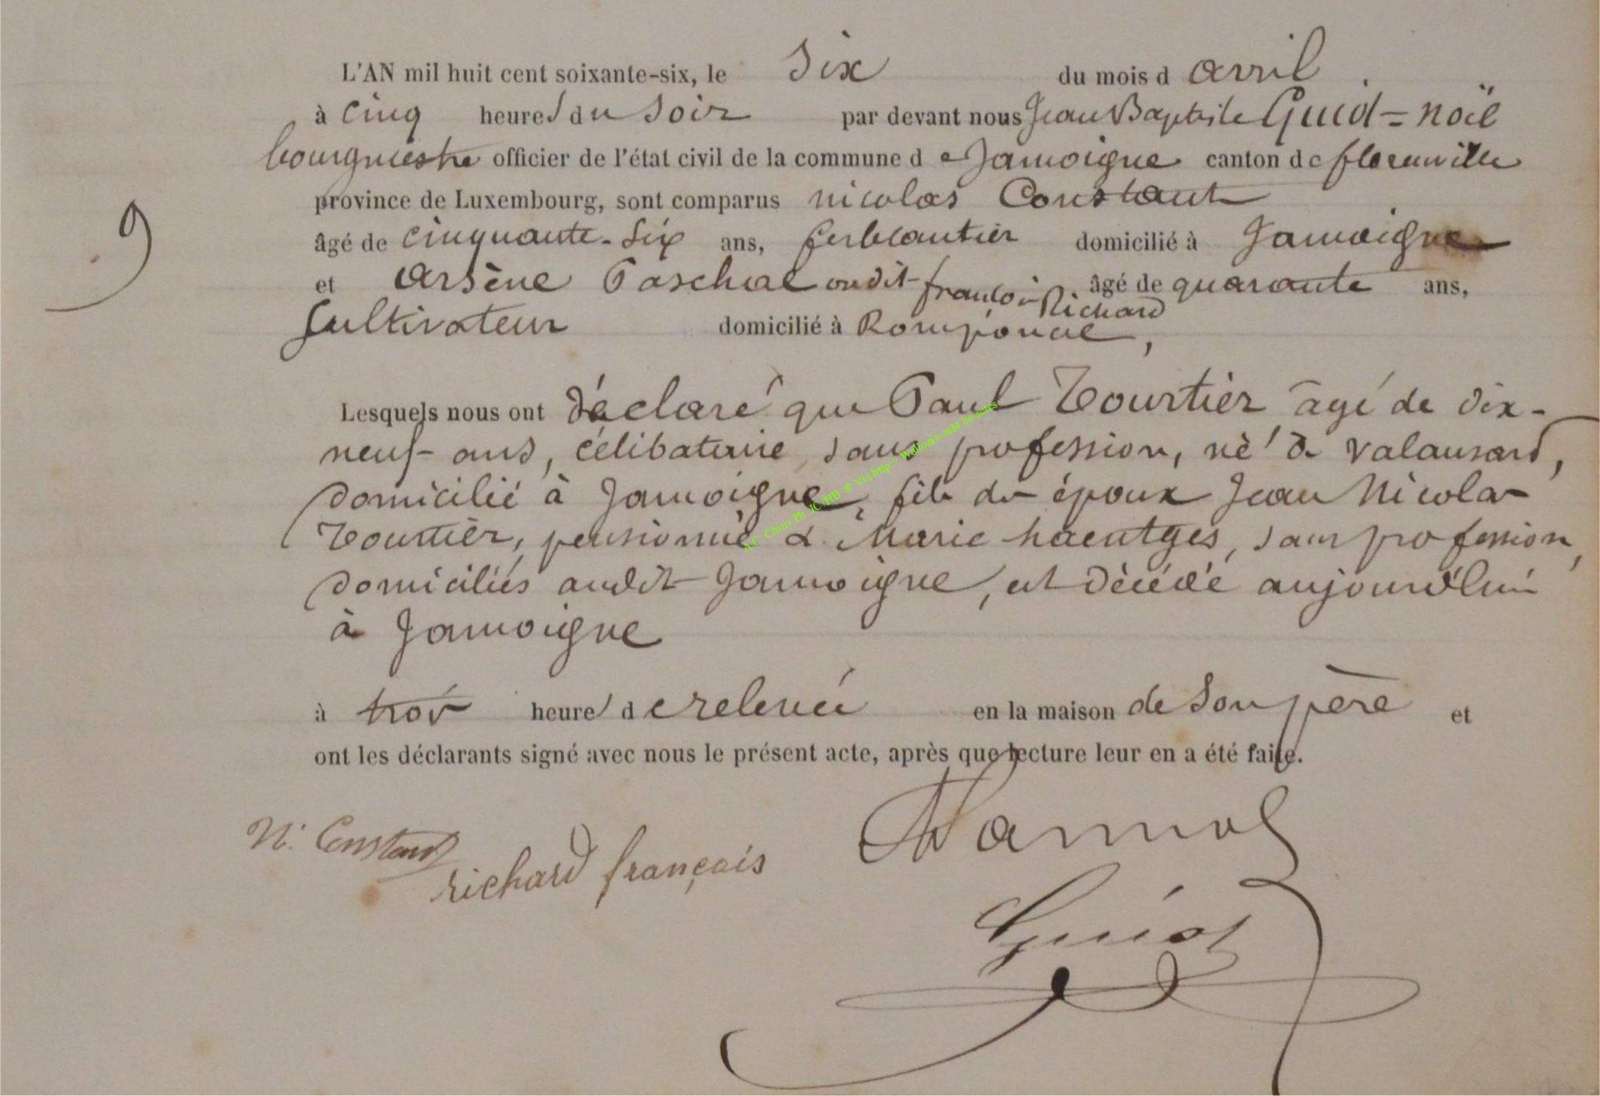 L'AN mil huit cent soixante-six, le Six du mois d avril
à cinq heures du soir par devant nous Jean Baptiste Guiot = Noël
9
bourgmestre officier de l'état civil de la commune de Jamoigne canton de florenville
province de Luxembourg, sont comparus nicolas Constant
âgé de cinquante-six ans, ferblantier domicilié à Jamoigne
et Arsène Paschal ou dit françois Richard âgé de quarante ans,
Cultivateur domicilié à Romponcel,
Lesquels nous ont déclaré que Paul Tourtier âgé de dix-
neuf ans, célibataire sans profession, né à valansart,
domicilié à Jamoigne, fils des époux Jean Nicolas
Tourtier, pensionné & Marie haentges, sans profession,
domiciliés audit Jamoigne, est décédé aujourd'hui
à Jamoigne
à trois heures de relevée en la maison de son père et
ont les déclarants signé avec nous le présent acte, après que lecture leur en a été faite.
N. Constant
richard françois
Guiot